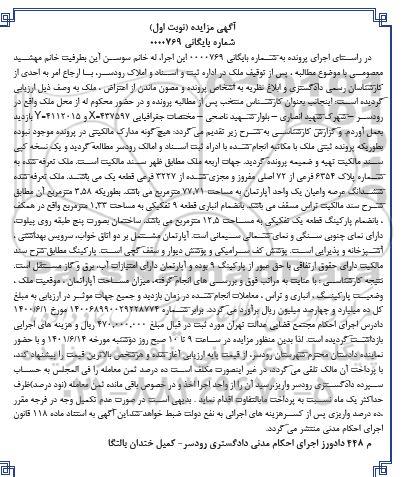 آگهی مزایده (نوبت اول)
شماره بایگانی ۰۰۰۰۷۶۹
در راستای اجرای پرونده به شماره بایگانی ۰۰۰۰۷۶۹ این اجرا، له خانم سوسن آین بطرفیت خانم مهشید
معصومی با موضوع مطالبه ، پس از توقیف ملک در اداره ثبت و اسناد و املاک رودسر، با ارجاع امر به احدی از
کارشناسان رسمی دادگستری و ابلاغ نظریه به اشخاص پرونده و مصون ماندن از اعتراض ، ملک به وصف ذیل ارزیابی
گردیده است: اینجانب بعنوان کارشناس منتخب پس از مطالعه پرونده و در حضور محکوم له از محل ملک واقع در
رودسر – شهرک شهید انصاری – بلوار شهید ناصحی – مختصات جغرافیایی X=۴۳۷۵۹۷ Y=۴۱۱۲۰۱۵ بازدید
بعمل آوردم و گزارش کارشناسی به شرح زیر تقدیم می گردد: هیچ گونه مدارک مالکیتی در پرونده موجود نبوده
بطوریکه پرونده ثبتی ملک با مکاتبه انجام شده با اداره ثبت اسناد و املاک رودسر مطالعه گردید و یک نسخه کپی
سند مالکیت تهیه و ضمیمه پرونده گردید. جهات اربعه ملک مطابق ظهر سند مالکیت است. ملک تعرفه شده به
شماره پلاک ۶۳۵۴ فرعی از ۷۲ اصلی مفروز و مجزی شده از ۳۲۲۷ فرعی قطعه یک می باشد. ملک تعرفه شده
ششدانگ عرصه واعیان یک واحد آپارتمان به مساحت ۷۷,۷۱ مترمربع می باشد بطوریکه ۳,۵۸ مترمربع آن مطابق
شرح سند مالکیت تراس مسقف می باشد. بانضمام انباری قطعه ۹ تفکیکی به مساحت ۱,۳۳ مترمربع واقع در همکف
، بانضمام پارکینگ قطعه یک تفکیکی به مساحت ۱۲,۵ مترمربع می باشد. ساختمان بصورت پنج طبقه روی پیلوت،
دارای نمای جنوبی سنگی و نمای شمالی سیمانی است. آپارتمان مشتمل بر دو اتاق خواب، سرویس بهداشتی ،
آشپزخانه و پذیرایی است. پوشش کف سرامیکی و پوشش دیوار و سقف گچی است. پارکینگ مطابق شرح سند
مالکیت دارای حقوق ارتفاقی با حق عبور از پارکینگ ۹ بوده و آپارتمان دارای امتیازات آب، برق و گاز مستقل است.
نتیجه کارشناسی : با عنایت به مراتب فوق و بررسی های انجام گرفته، میزان مساحت آپارتمان ، موقعیت ملک ،
وضعیت پارکینگ ، انباری و تراس ، معاملات انجام شده در زمان بازدید و جمیع جهات موثر در ارزیابی به مبلغ
کل ده میلیارد و چهارصد میلیون ریال برآورد می گردد. برابر شماره ۱۴۰۰۶۸۹۹۰۰۲۹۲۲۸۷۷۴ مورخ ۱۴۰۰/۶/۱
دادرس اجرای احکام مجتمع قضایی عدالت تهران مورد ثبت در قبال مبلغ ۴۷۰,۰۰۰,۰۰۰ ریال و هزینه های اجرایی
بازداشت گردیده است. لذا بدین منظور مزایده در ساعت ۹ تا ۱۰ صبح روز دوشنبه مورخه ۱۴۰۱/۶/۱۴ و با حضور
نماینده دادستان محترم شهرستان رودسر، از قیمت پایه ارزیابی آغاز شده و هرشخص بالاترین قیمت را پیشنهاد کند،
با پرداخت آن مالک تلقی می گردد، در غیر اینصورت مکلف است ده درصد ثمن معامله را فی المجلس به حساب
سپرده دادگستری رودسر واریز،رسید آن را به واحد اجرا اخذ و در خصوص باقی مانده ثمن معامله (نود درصد)ظرف
حداکثر یک ماه نسبت به پرداخت مابالتفاوت اقدام نماید . بدیهی است در صورت عدم تکمیل وجه در فرجه مقرر
،ده درصد واریزی پس از کسرهزینه های اجرائی به نفع دولت ضبط خواهد شد.این آگهی به استناد ماده ۱۱۸ قانون
اجرای احکام مدنی منتشر می گردد.
م ۴۴۸ دادورز اجرای احکام مدنی دادگستری رودسر– کمیل خندان پالتگا